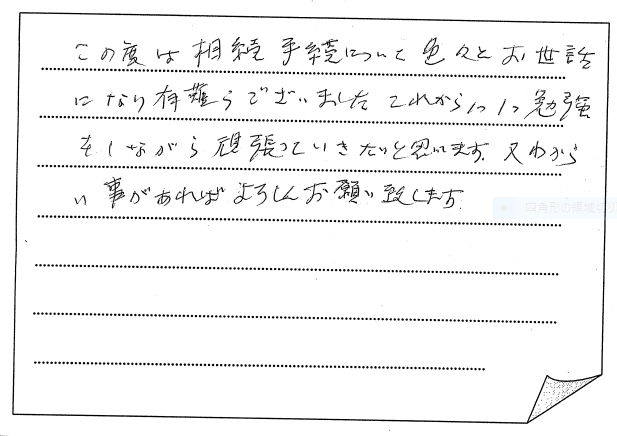 この度は相続手続について色々とお世話
になり有難うございました これから1つ1つ勉強
をしながら頑張っていきたいと思います。又わから
い事があればよろしくお願い致します。
四角形の領域切り